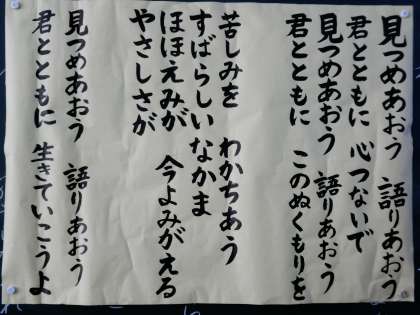 見つめあおう　語りあおう
君とともに　心つないで
見つめあおう　語りあおう
君とともに　このぬくもりを
苦しみを　わかちあう
すばらしいなかま
ほほえみが　今よみがえる
やさしさが
見つめあおう　語りあおう
君とともに　生きていこうよ